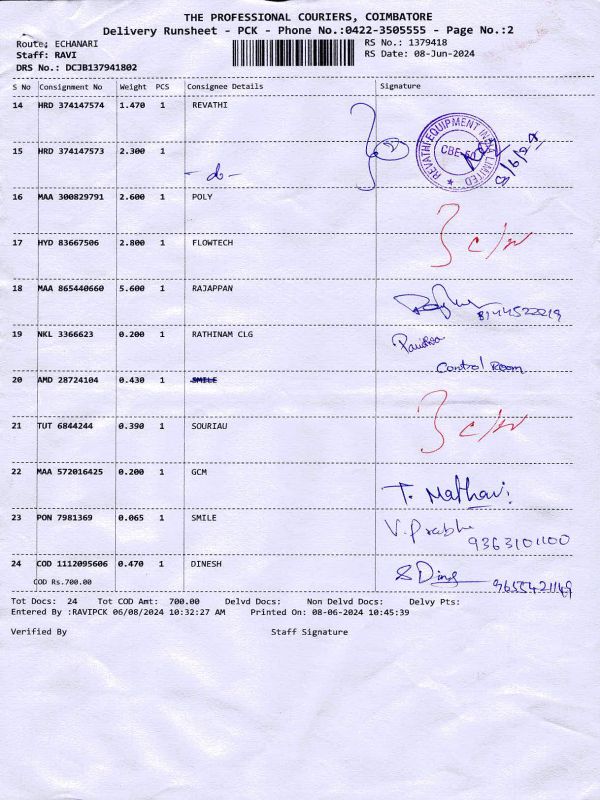 THE PROFESSIONAL COURIERS, COIMBATORE
Delivery Runsheet - PCK - Phone No.:0422-3505555 - Page No.:2
Route: ECHANARI RS No.: 1379418
Staff: RAVI RS Date: 08-Jun-2024
DRS No.: DCJB137941802
S No Consignment No Weight PCS Consignee Details Signature
14 HRD 374147574 1.470 1 REVATHI
REVATHI EQUIPMENT INDIA LIMITED
CBE-50
15 HRD 374147573 2.300 1
- do -
16 MAA 300829791 2.600 1 POLY
17 HYD 83667506 2.800 1 FLOWTECH
18 MAA 865440660 5.600 1 RAJAPPAN
8144522219
19 NKL 3366623 0.200 1 RATHINAM CLG
Control Room
20 AMD 28724104 0.430 1 SMILE
21 TUT 6844244 0.390 1 SOURIAU
22 MAA 572016425 0.200 1 GCM
T. Mathavi
23 PON 7981369 0.065 1 SMILE
V. Prabhu
9363101100
24 COD 1112095606 0.470 1 DINESH
S Dines
COD Rs.700.00
Tot Docs: 24 Tot COD Amt: 700.00 Delvd Docs: Non Delvd Docs: Delvy Pts:
Entered By :RAVIPCK 06/08/2024 10:32:27 AM Printed On: 08-06-2024 10:45:39
Verified By Staff Signature